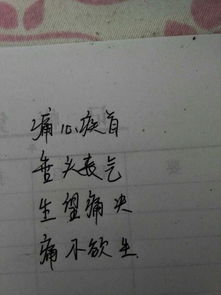 痛心疾首
垂头丧气
生痛
痛不欲生